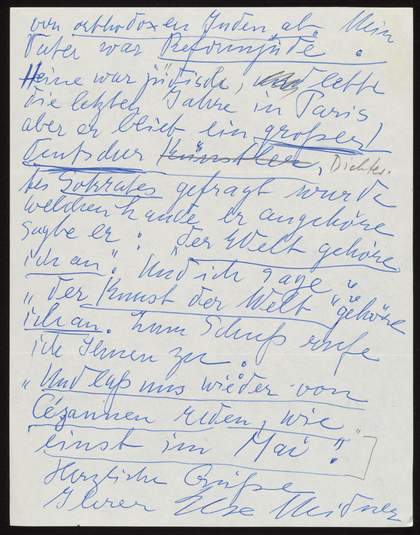 von orthodoxen Juden ab. Mein
Vater war "Reformjude".
Heine war jüdisch, lebte
die letzten Jahre in Paris,
aber er blieb ein großer
deutscher Künstler, Dichter.
Als Sokrates gefragt wurde
welchem Lande er angehöre
sagte er: "der Welt gehöre
ich an". Und ich sage
"der Kunst der Welt" gehöre
ich an. Zum Schluß rufe
ich Ihnen zu:
"Und laß uns wieder von
Cézannen reden, wie
einst im Mai".
Herzliche Grüße
Ihrer Else Meidner